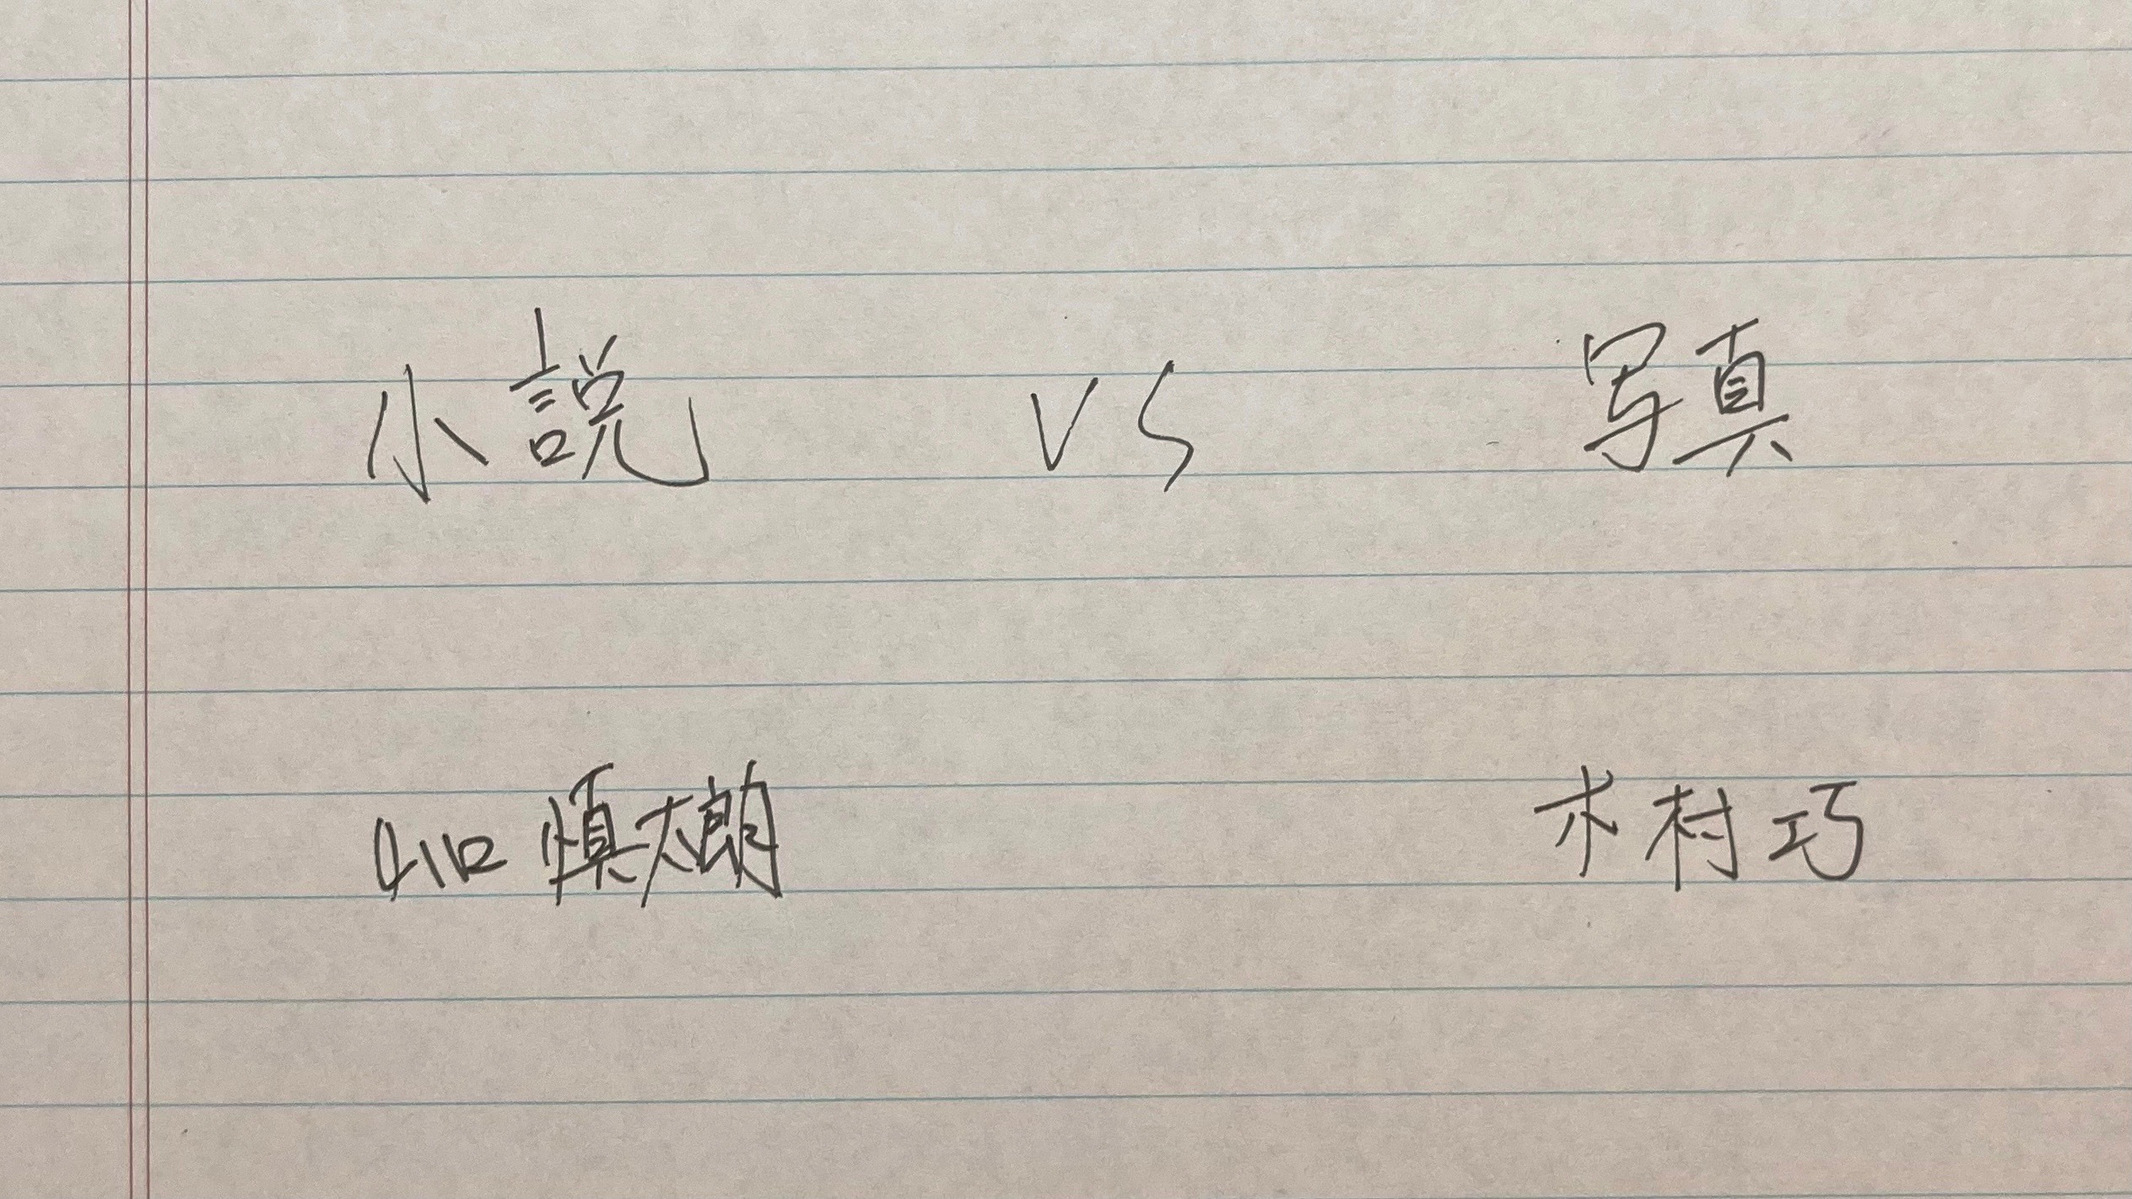 小説 VS 写真
山口 慎太朗 木村巧